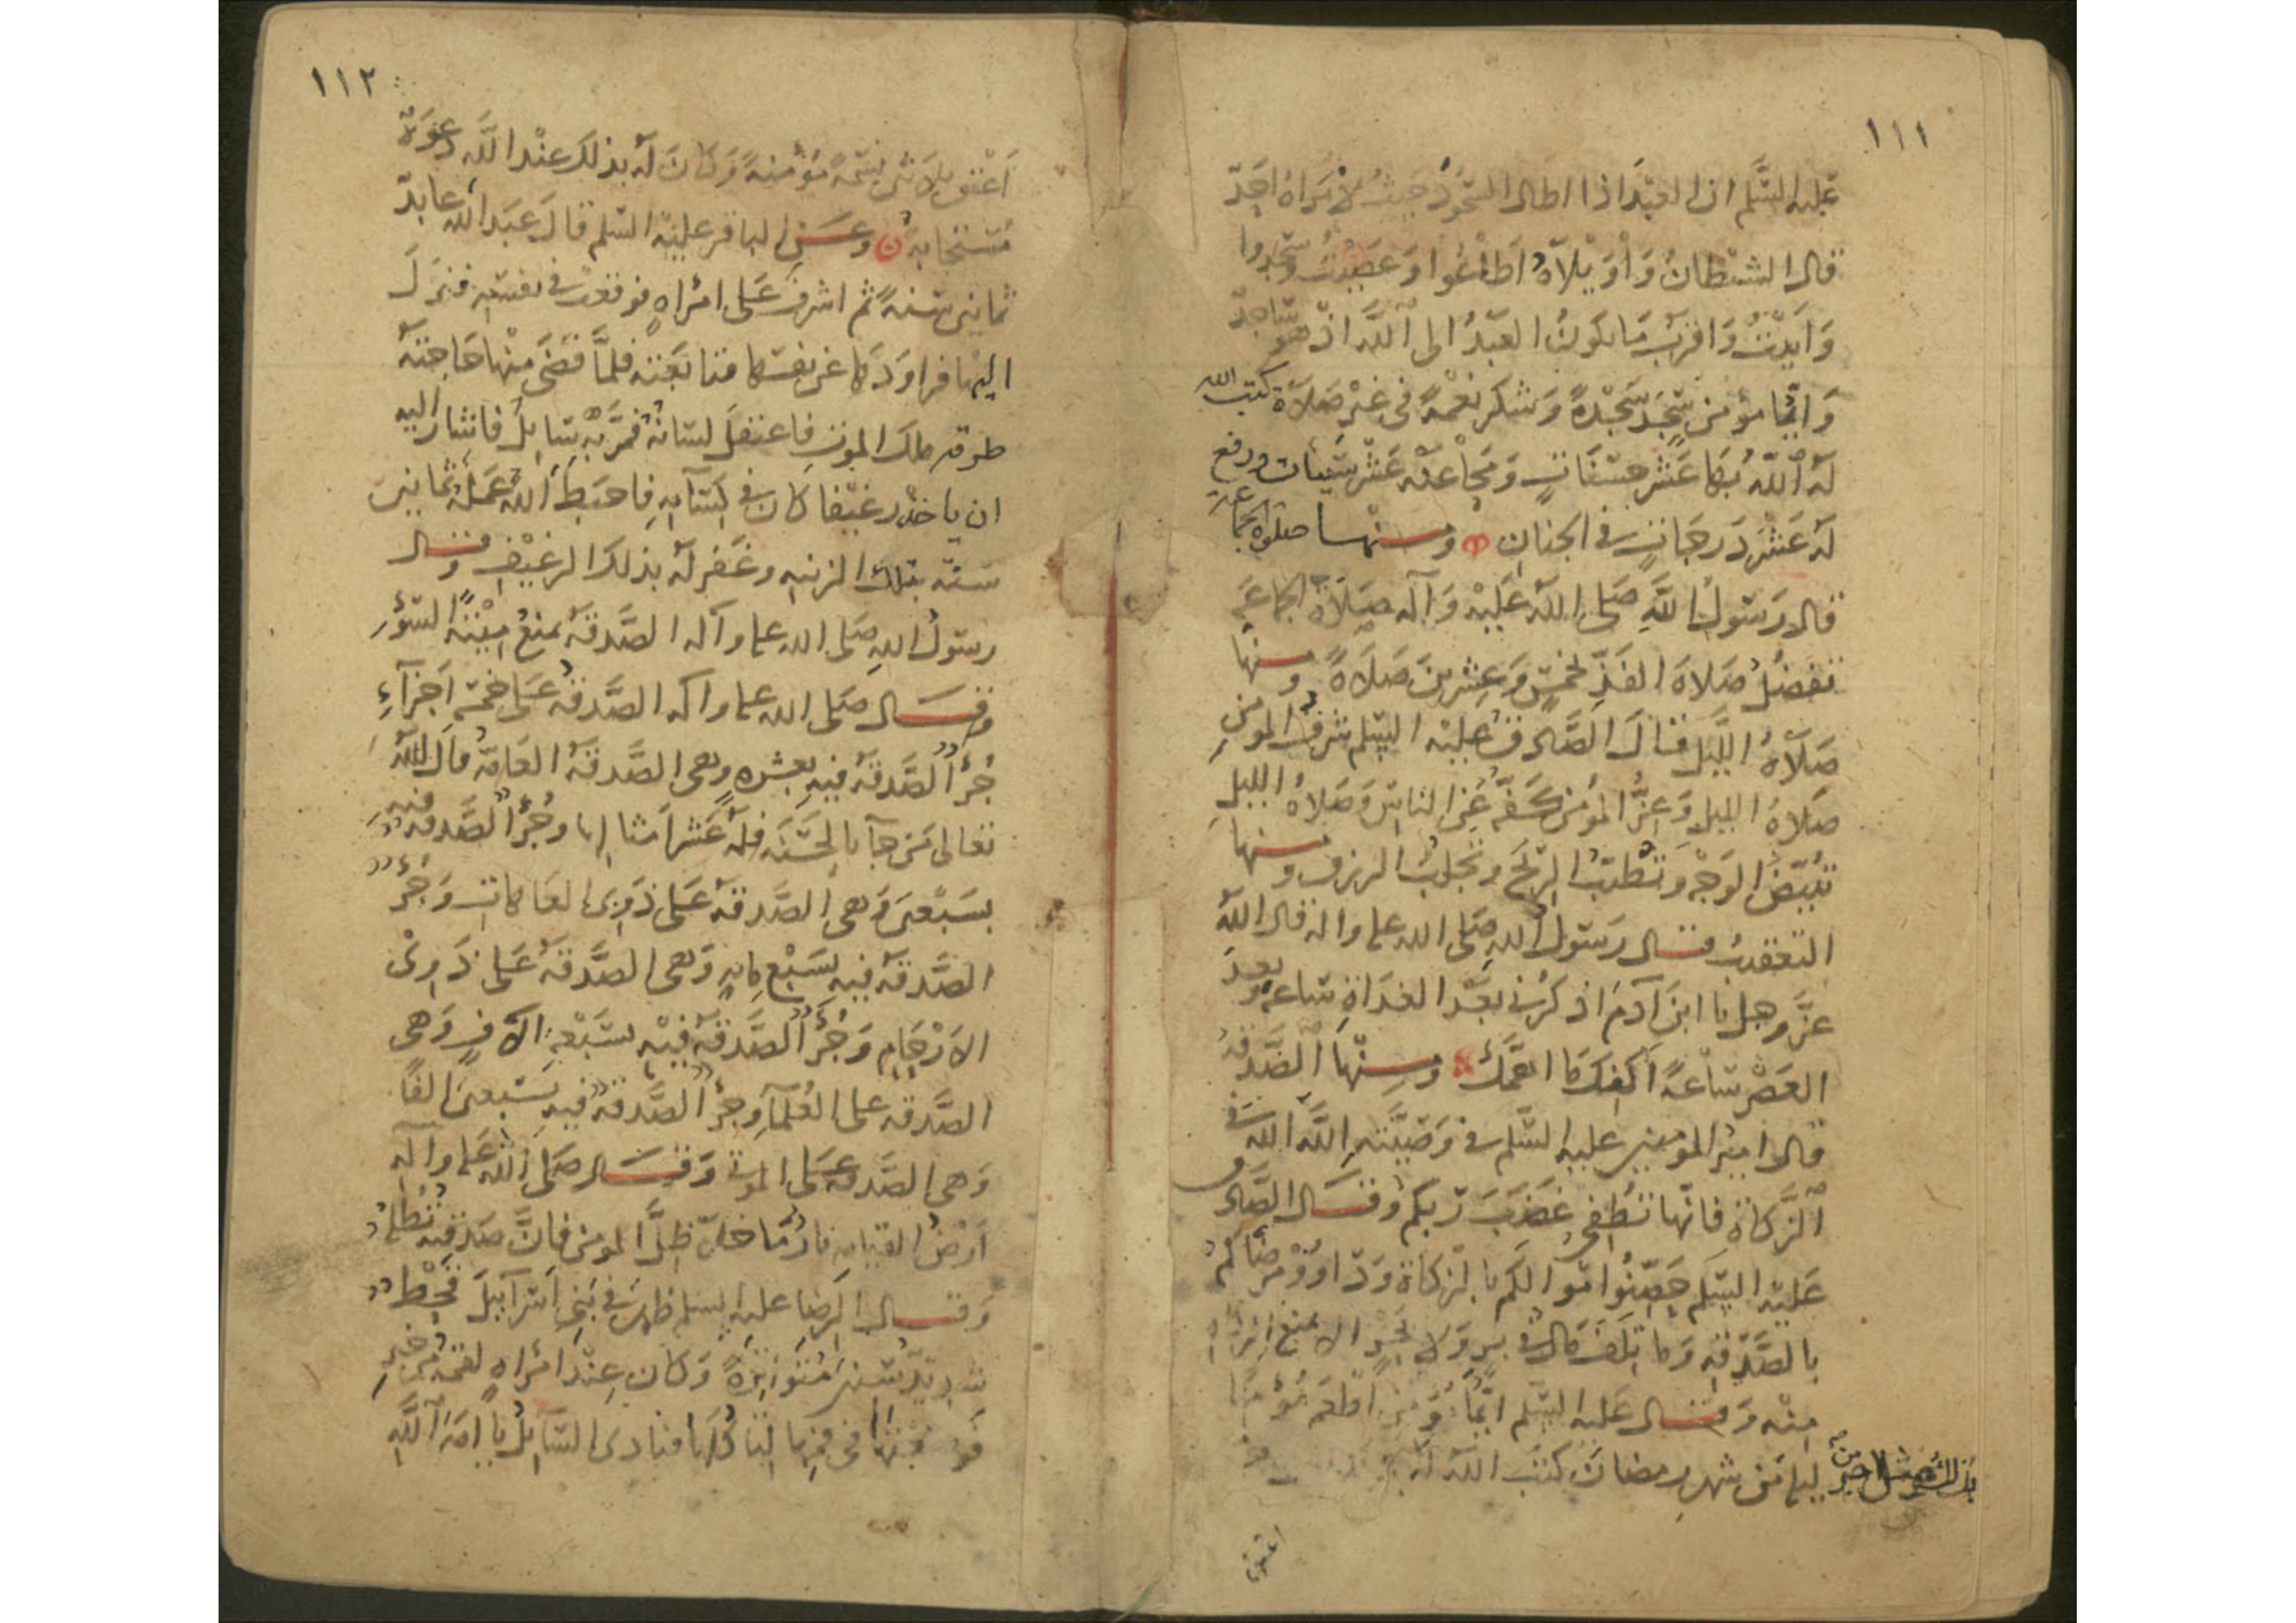 ١١١
عليه السلم ان العبد اذا اطال السجود حيث لا يراه احد
قال الشيطان واويلاه اطاعوا وعصيت وسجدوا
وابيت واقرب ما يكون العبد الى الله اذ هو ساجد
وايما مؤمن سجد سجدة وشكر نعمة في غير صلاة كتب الله
له الله بها عشر حسنات ومحا عنه عشر سيئات ورفع
له عشر درجات في الجنان ومنها صلوة الجماعة
قال رسول الله صلى الله عليه وآله صلاة الجماعة
تفضل صلاة الفذ بخمس وعشرين صلاة ومنها
صلاة الليل قال الصادق عليه السلم شرف المومن
صلاة الليل وعز المؤمن كفه عن الناس وصلاة الليل
تبيض الوجه وتطيب الريح وتجلب الرزق ومنها
التعقيب قال رسول الله صلى الله عليه واله قال الله
عز وجل يا ابن آدم اذكرني بعد الغداة ساعة وبعد
العصر ساعة اكفك ما اهمك ومنها الصدقة
قال امير المومنين عليه السلم في وصيته الله الله في
الزكاة فانها تطفي غضب ربكم وقال الصادق
عليه السلم حصنوا اموالكم بالزكاة وداووا مرضاكم
بالصدقة وما تلف مال في بر ولا بحر الا بمنع الزكاة
منه وقال عليه السلم ايما مؤمن اطعم مؤمنا
ليلة من شهر رمضان كتب الله له
بذلك مثل اجر من
اعتق
١١٢
اعتق ثلاثين نسمة مؤمنة وكان له بذلك عند الله دعوة
مستجابة وعن الباقر عليه السلم قال عبد الله عابد
ثمانين سنة ثم اشرف على امراة فوقعت في نفسه فنزل
اليها فراودها عن نفسها فتابعته فلما قضى منها حاجته
طرقه ملك الموت فاعتقل لسانه فمر به سايل فاشار اليه
ان ياخذ رغيفا كان في كسائه فاحبط الله عمله ثمانين
سنة بتلك الزنيه وغفر له بذلك الرغيف وقال
رسول الله صلى الله عليه وآله الصدقة تمنع ميتة السؤ
وقال صلى الله عليه وآله الصدقة على خمسة اجزآء
جزأ الصدقة فيه بعشرة وهي الصدقة العامة قال الله
تعالى من جآ بالحسنة فله عشر امثالها وجزأ الصدقة فيه
بسبعين وهي الصدقة على ذوي العاهات وجزأ
الصدقة فيه بسبع مايه وهي الصدقة على ذوي
الارحام وجزأ الصدقة فيه بسبعة الاف وهي
الصدقة على العلمآ وجزأ الصدقة فيه بسبعين الفا
وهي الصدقة على الموتى وقال صلى الله عليه وآله
ارض القيامه نار ما خلا ظل المومن فان صدقته تظله
وقال الرضا عليه السلم ظهر في بني اسرآييل قحط
شديد سنين متواترة وكان عند امراه لقمة من خبز
فوضعتها في فمها لتاكلها فنادى السايل يا امة الله